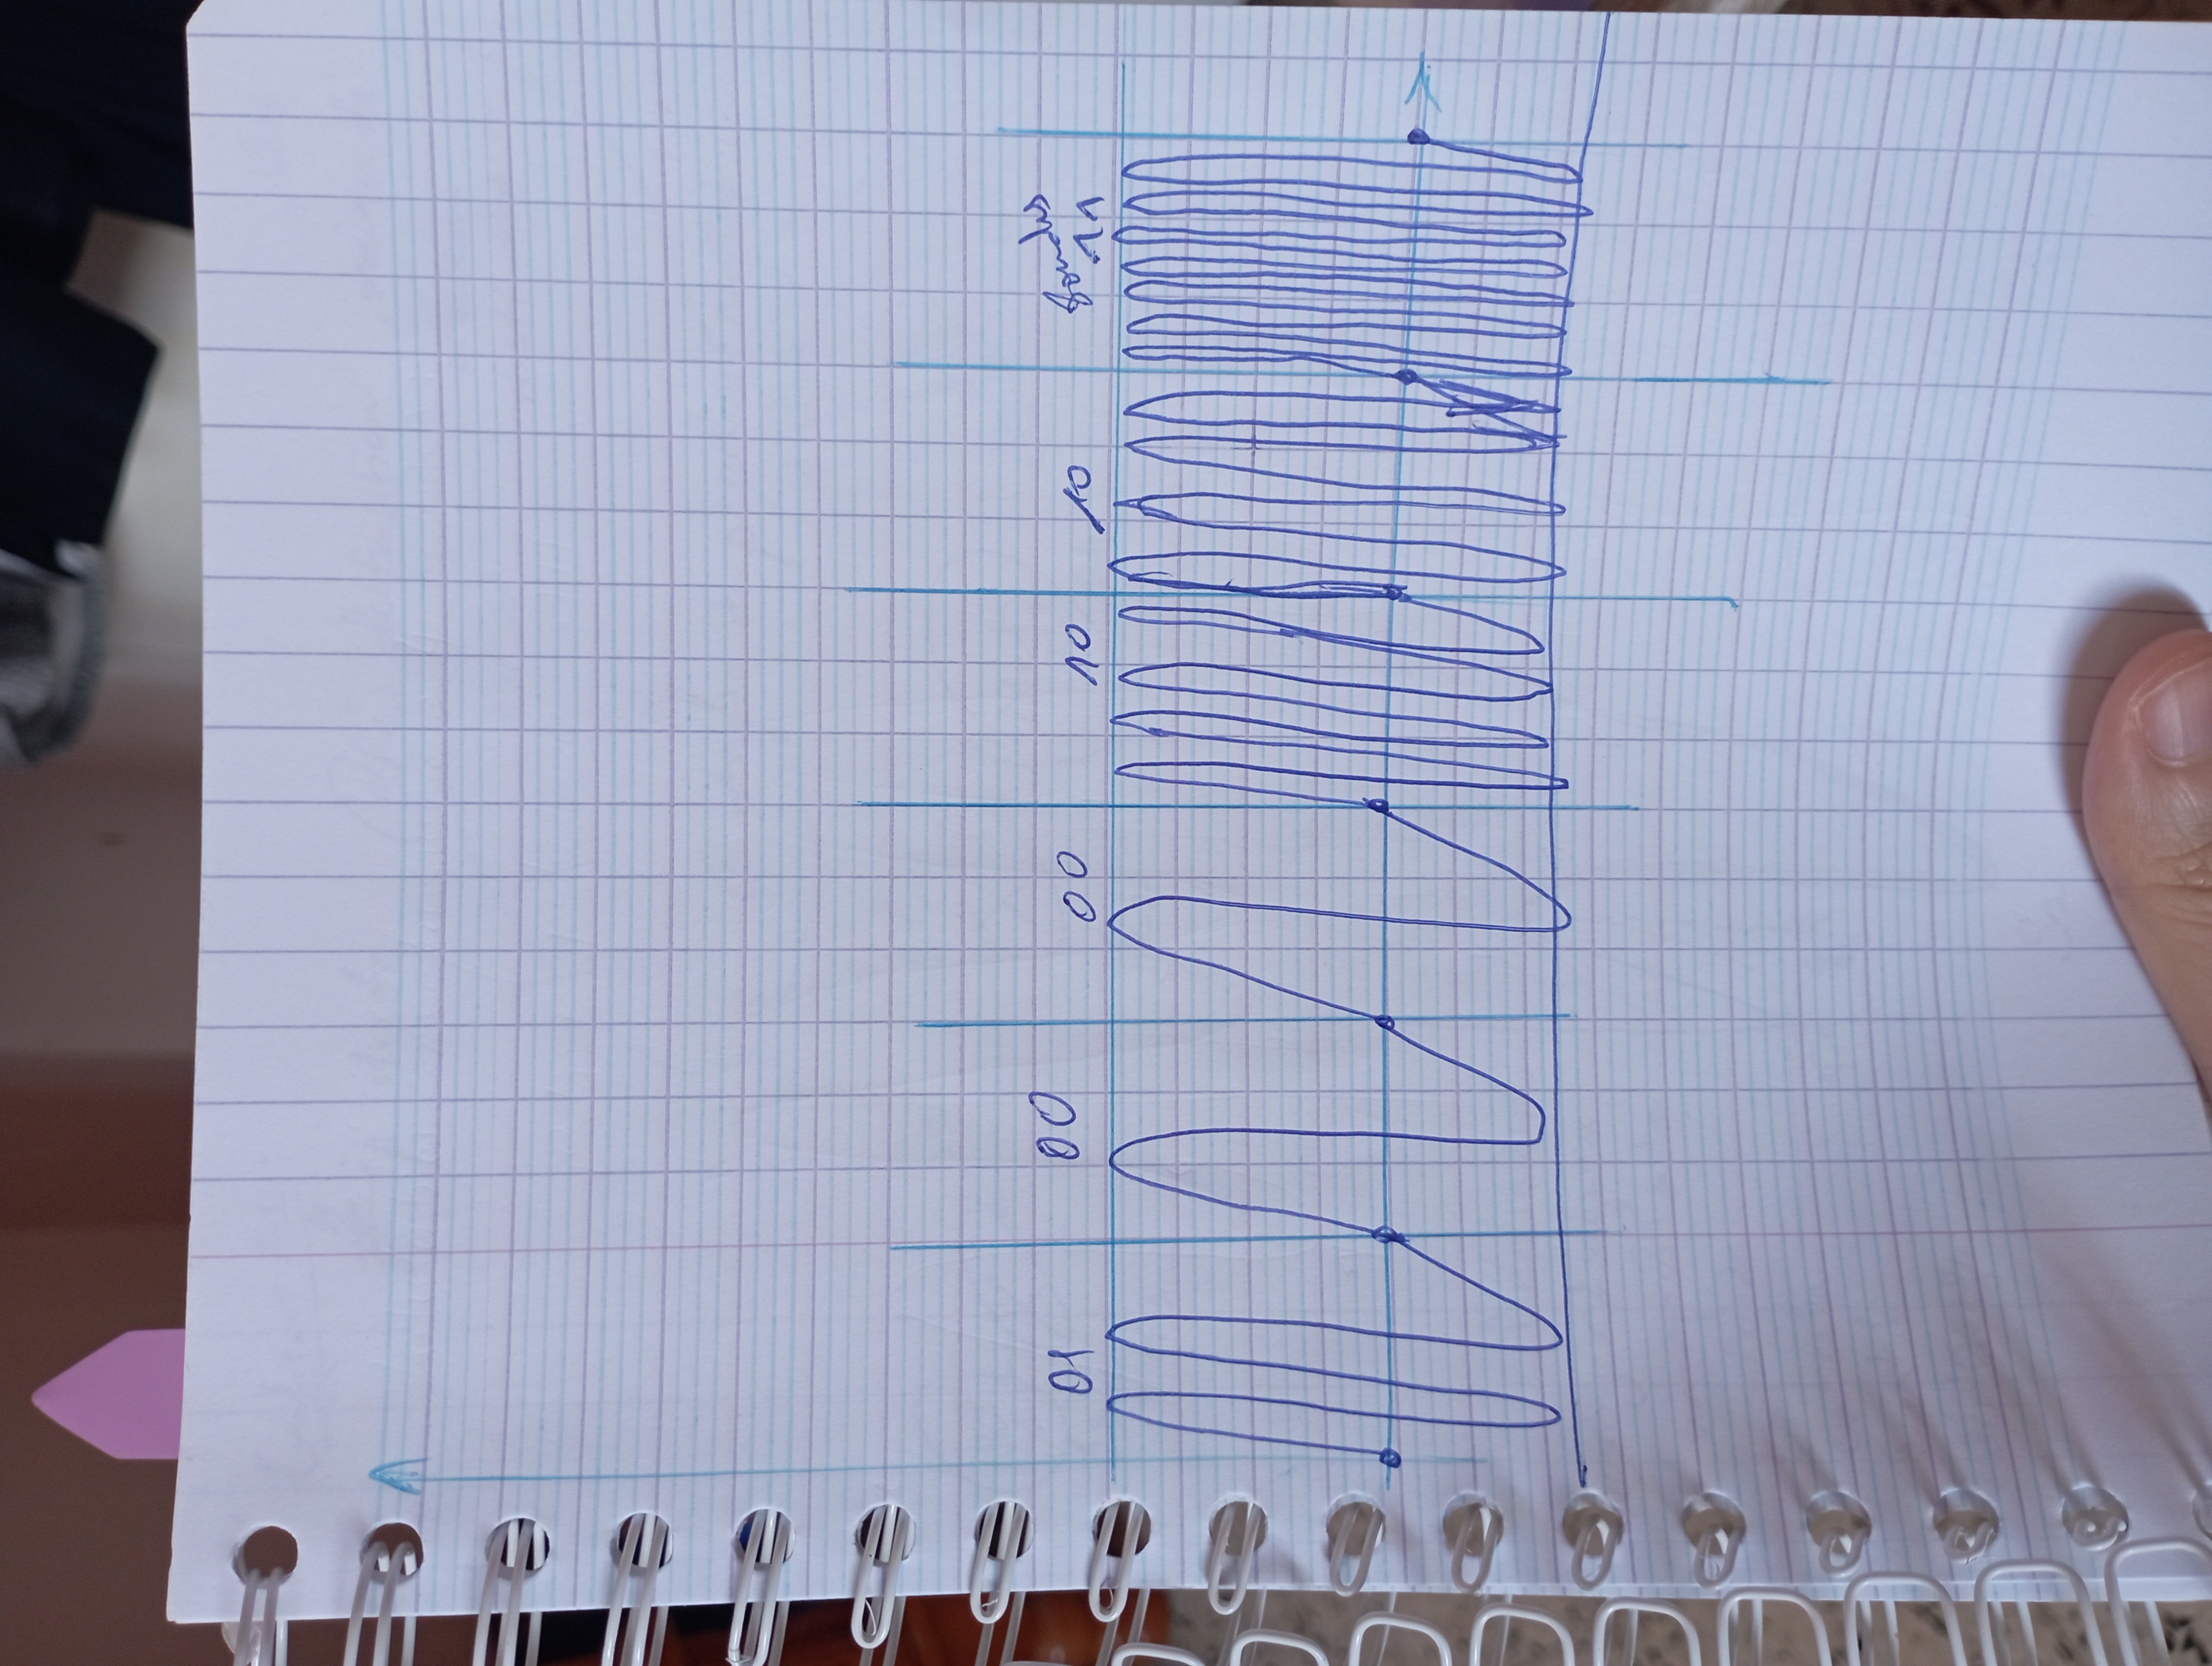 01 00 00 10 10 8 ondes
11